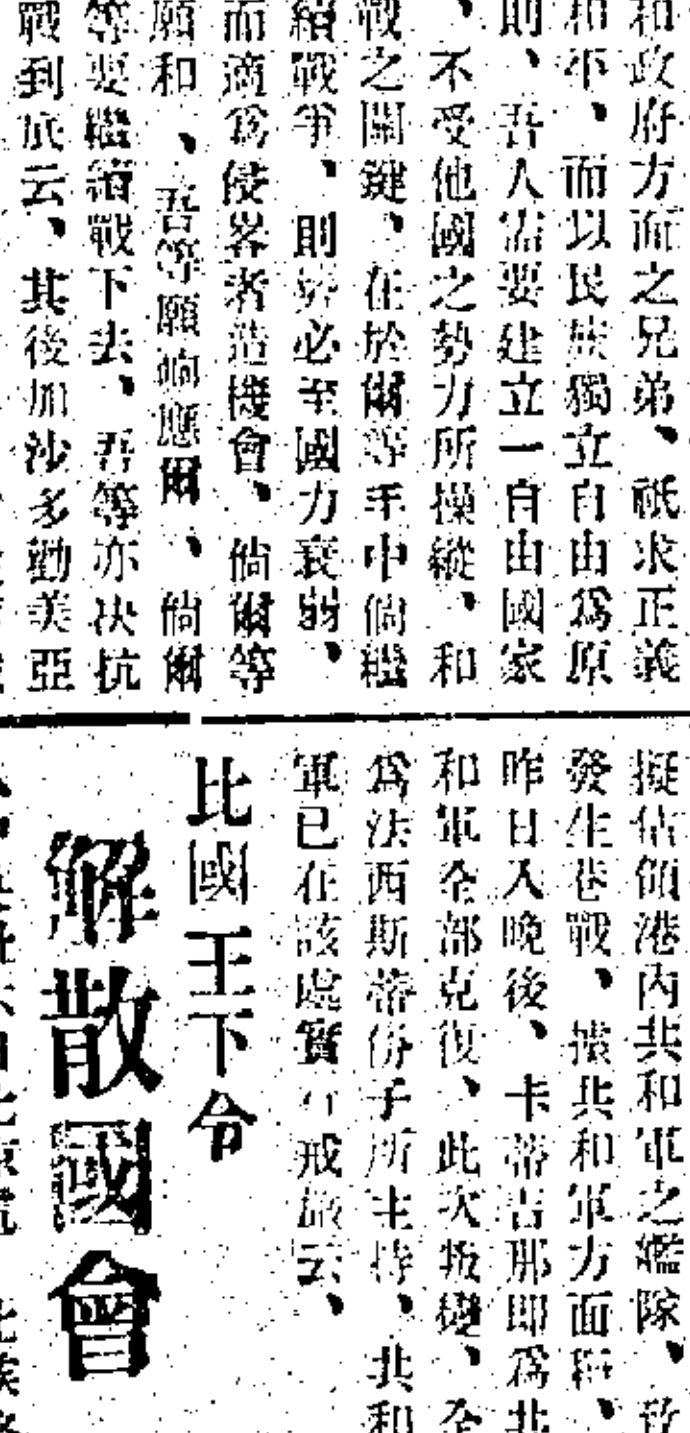 和政府方面之兄弟、祇求正義
和平、而以民族獨立自由爲原
則、吾人需要建立一自由國家
、不受他國之勢力所操縱、和
戰之關鍵、在於爾等手中倘繼
續戰爭、則必至國力衰弱、
而適爲侵畧者造機會、倘爾等
願和、吾等願响應爾、倘爾
等要繼續戰下去、吾等亦决抗
戰到底云、其後加沙多勸美亞
擬佔領港內共和軍之艦隊、致
發生巷戰、據共和軍方面稱、
昨日入晚後、卡蒂吉那即爲共
和軍全部克復、此次叛變、全
爲法西斯蒂份子所主持、共和
軍已在該處實行戒嚴云、
比國王下令
解散國會